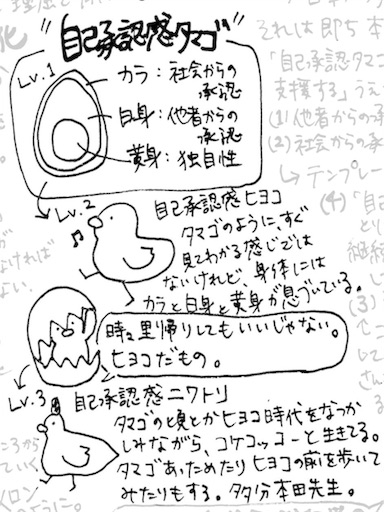 "自己承認感タマゴ"
Lv.1
カラ：社会からの
承認
白身：他者からの
承認
黄身：独自性
Lv.2
自己承認感ヒヨコ
タマゴのように、すぐ
見てわかる感じでは
ないけれど、身体には
カラと白身と黄身が息づいている。
時々里帰りしてもいいじゃない。
ヒヨコだもの。
Lv.3
自己承認感ニワトリ
タマゴの頃とかヒヨコ時代をなつか
しみながら、コケコッコーと生きてる。
タマゴあっためたりヒヨコの前を歩いて
みたりもする。多分本田先生。
それは即ち本
「自己承認タマゴ
支援する」うえ
(1)他者からの承
(2)社会からの承
↳テンプレー
(4)「自己